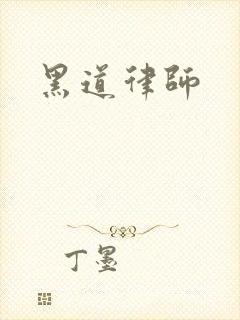 黑道律師
丁墨